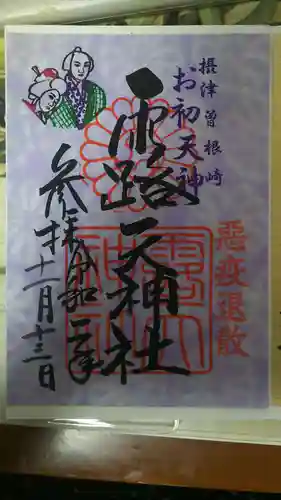 摂津曽根崎
お初天神
露天神社
参拝
令和二年
十一月十三日
悪疫退散